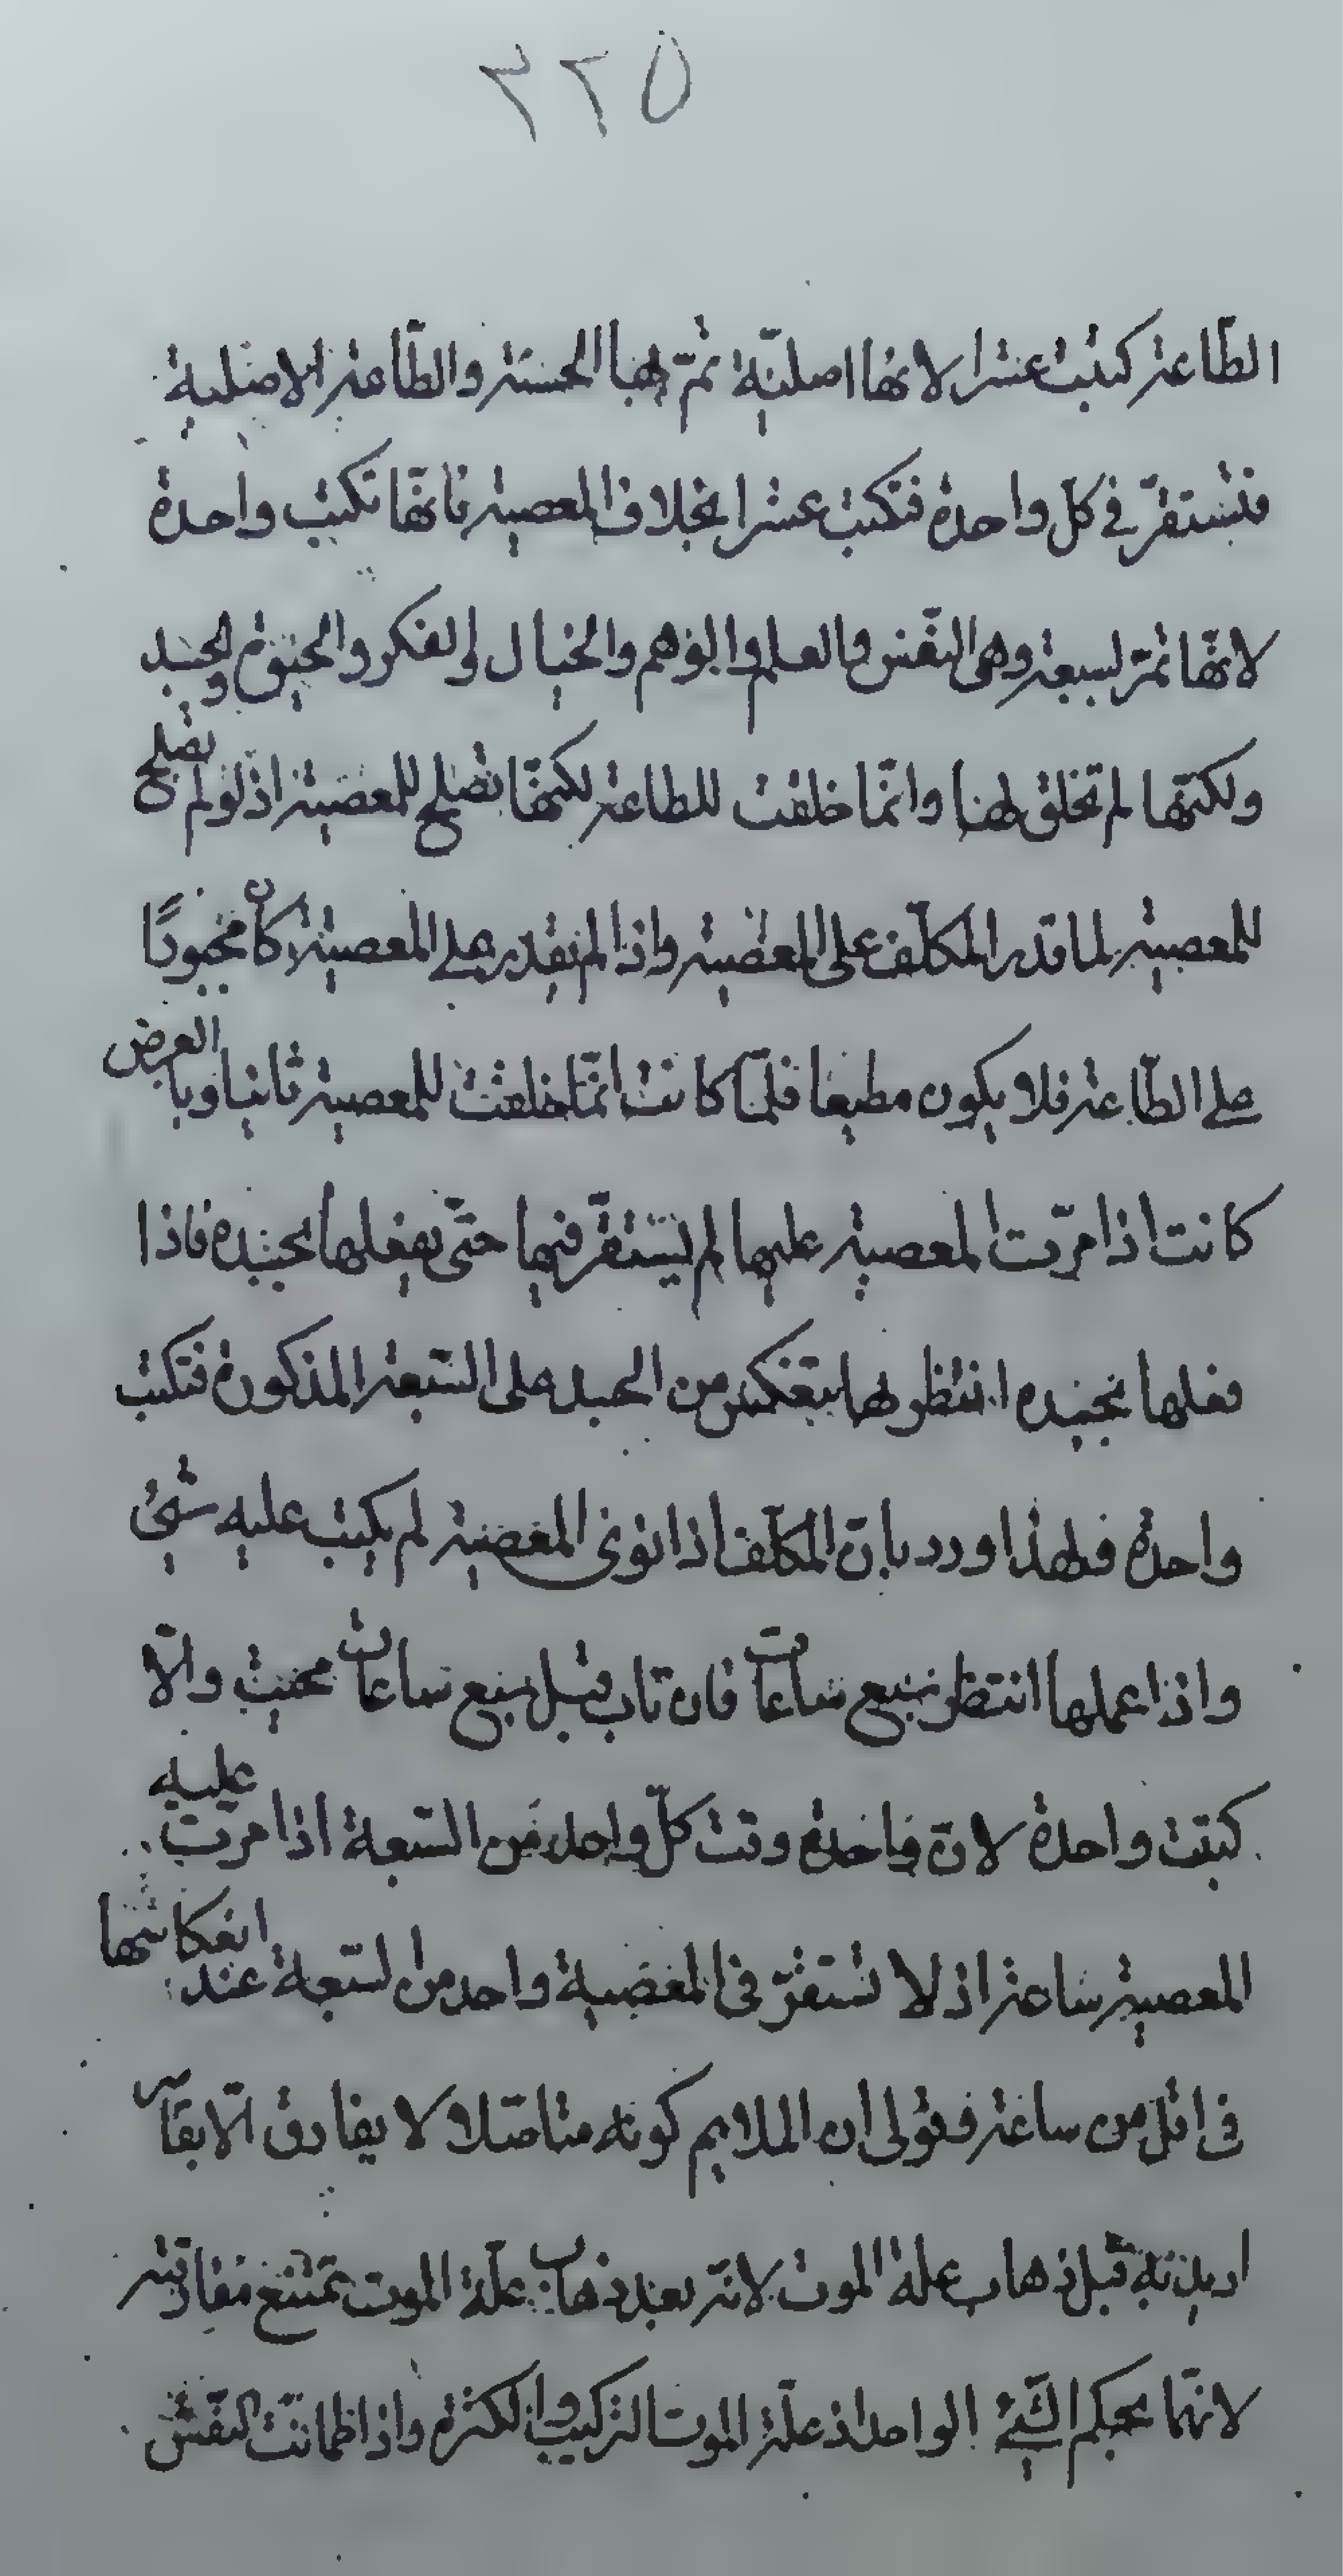 ٣٢٥
الطّاعة كتبت عشرا لانها اصليّة تمرّ بها الحسنة والطّاعة الاصلية
فتستقرّ في كل واحدة فتكتب عشرا بخلاف المعصية فانّها تكتب واحدة
لانّها تمرّ لسبعة وهي النفس والعلم والوهم والخيال والفكر والحيوة والجسد
ولكنّها لم تخلق لهنا وانّما خلقت للطاعة لكنّها تصلح للمعصية اذ لو لم تصلح
للمعصية لما قدر المكلّف على المعصية واذا لم يقدر على المعصية كان مجبورًا
على الطّاعة فلا يكون مطيعا فلمّا كانت انّما خلقت للمعصية ثانيا وبالعرض
كانت اذا مرّت المعصية عليها لم يستقرّ فيها حتّى يفعلها بجسده فاذا
فعلها بجسده انتظر لها ينعكس من الجسد على السّبعة المذكورة فتكتب
واحدة فلهذا ورد بانّ المكلّف اذا نوى المعصية لم يكتب عليه شيئ
واذا عملها انتظر سبع ساعات فان تاب قبل سبع ساعات محيت والّا
كتبت واحدة لانّ واحدة وقت كلّ واحد من السّبعة اذا مرّت عليه
المعصية ساعة اذ لا تستقرّ في المعصية واحد من السّبعة عند انعكاسها
في اقل من ساعة فقولي ان الملايم كونه متاصّلا لا يفارق الّا بقاسر
اريد به قبل ذهاب علة الموت لانّه بعد ذهاب علّة الموت تمتنع مفارقته
لانّهما بحكم الشيئ الواحد اذ علّة الموت التركيب والكثرة واذا اطمانّت النّفس